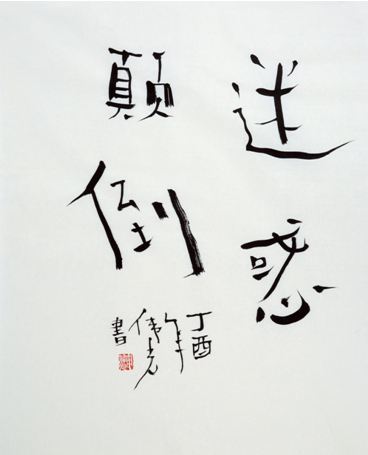 迷惑
顛倒
丁酉
年
伟光
書